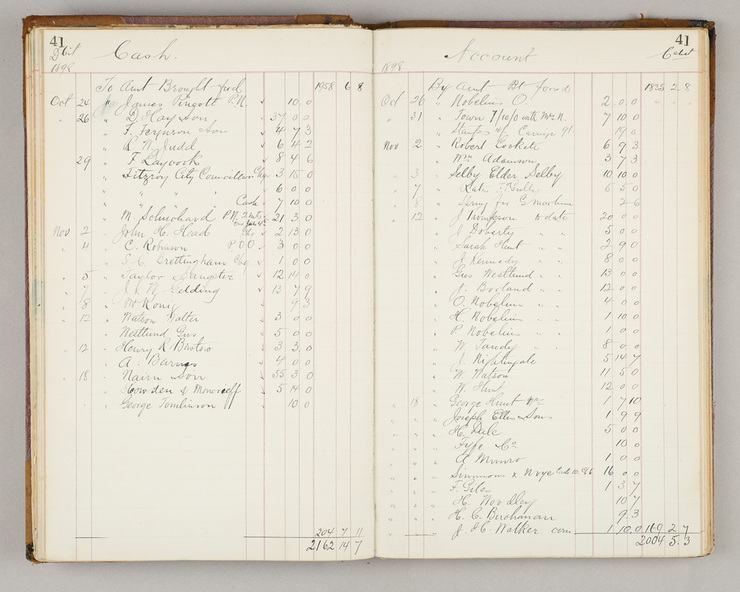 41
Cash.
1898
To Amt Brought ford 1958 6 8
Oct 24 James Pingott P.N. 10.0
26 D. Hay & Son 37 0 0
F. Ferguson & Son 4 7 3
R W Judd 6 4 2
29 F Laycock 8 4 6
Fitzroy City Councillors Chq 3 15 0
6 0 0
Cash 7 10 0
M 21 3 0
Nov 2 John H. Head Chq 2 13 0
11 C. Robinson P.O.O 3 0 0
Chq 1 0 0
5 Taylor Sangster 12 14 0
7 J & W 13 7 9
8 McKong 9 3
12 Watson Walter 3 0 0
Westlund Gus 5 0 0
12 Henry R 3 3 0
A. Barnes 4 0 0
18 Nairn & Son 55 3 0
Howden & Moncrieff 5 14 0
George Tomlinson 10 0
204 7 11
2162 14 7
41
Account
1898
By Amt Bt ford 1835 2 8
Oct 26 Nobelius O. 2 0 0
31 Town 7/10/0 with Mrs N. 7 10 0
19 0
Nov 2 Robert Lockett 6 9 3
Wm Adamson 3 7 3
3 Selby Elder Selby 10 10 0
7 6 5 0
8 2 6
12 J Thompson to date 20 0 0
J Doherty 5 0 0
Sarah Hunt 2 9 0
J Kennedy 8 0 0
Gus Westlund 13 0 0
J. Borland 12 0 0
O Nobelius 4 0 0
H Nobelius 1 10 0
P Nobelius 1 0 0
W Tandy 8 0 0
J. Nightingale 5 14 7
W Watson 11 5 0
W Hunt 12 0 0
18 George Hunt 1 7 10
Joseph Ellis & Sons 1 9 9
H. Dale 5 0 0
Fyfe & Co 10 0
A Munro 1 0 0
Simmons & 16 0 0
F. Giles 1 3 7
H. Woodley 10 7
H. C. Buchanan 9 3
J & C Walker com 1 10 0 169 2 7
2004 5 3